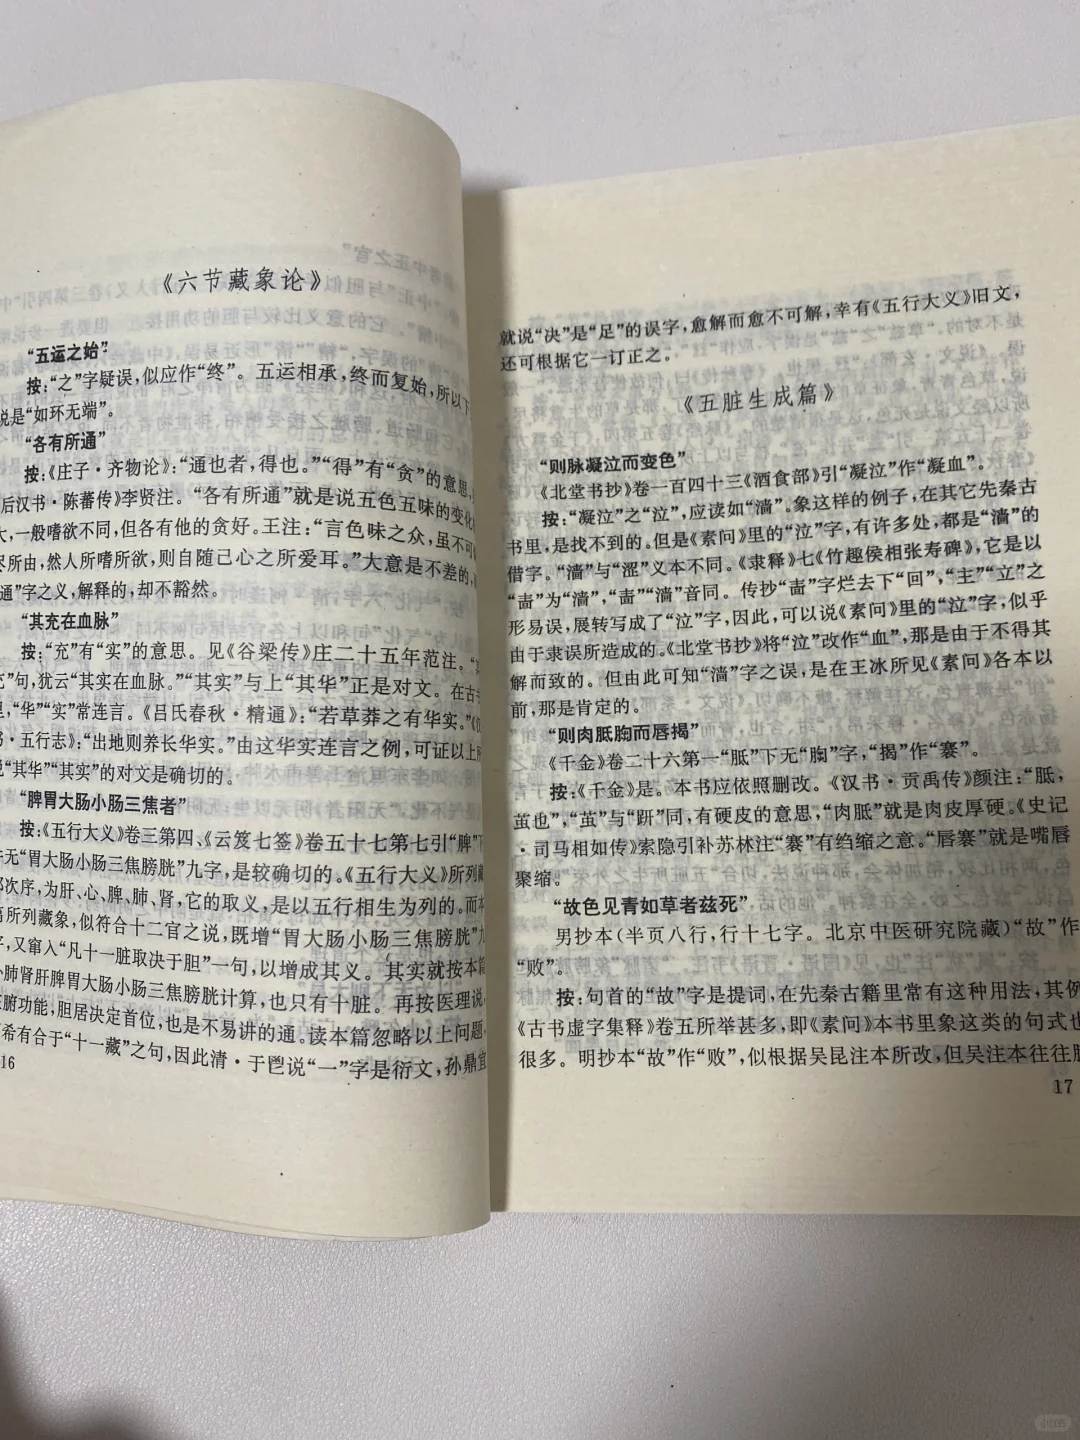 《六节藏象论》
“五运之始”
按:“之”字疑误,似应作“终”。五运相承,终而复始,所以下
说是“如环无端”。
“各有所通”
按:《庄子·齐物论》:“通也者,得也。”“得”有“贪”的意思,
后汉书·陈蕃传》李贤注。“各有所通”就是说五色五味的变化
大,一般嗜欲不同,但各有他的贪好。王注:“言色味之众,虽不可
尽所由,然人所嗜所欲,则自随己心之所爱耳。”大意是不差的,
通”字之义,解释的,却不豁然。
“其充在血脉”
按:“充”有“实”的意思。见《谷梁传》庄二十五年范注。“其
充”句,犹云“其实在血脉。”“其实”与上“其华”正是对文。在古
里,“华”“实”常连言。《吕氏春秋·精通》:“若草莽之有华实。”《
书·五行志》:“出地则养长华实。”由这华实连言之例,可证以上所
说“其华”“其实”的对文是确切的。
“脾胃大肠小肠三焦者”
按:《五行大义》卷三第四、《云笈七签》卷五十七第七引“脾”下
无“胃大肠小肠三焦膀胱”九字,是较确切的。《五行大义》所列
次序,为肝、心、脾、肺、肾,它的取义,是以五行相生为列的。而本
所列藏象,似符合十二官之说,既增“胃大肠小肠三焦膀胱”九
字,又窜入“凡十一脏取决于胆”一句,以增成其义。其实就按本篇
心肺肾肝脾胃大肠小肠三焦膀胱计算,也只有十脏。再按医理说,
脏腑功能,胆居决定首位,也是不易讲的通。读本篇忽略以上问题,
希有合于“十一藏”之句,因此清·于鬯说“一”字是衍文,孙鼎宜
16
就说“决”是“足”的误字,愈解而愈不可解,幸有《五行大义》旧文,
还可根据它一订正之。
《五脏生成篇》
“则脉凝泣而变色”
《北堂书抄》卷一百四十三《酒食部》引“凝泣”作“凝血”。
按:“凝泣”之“泣”,应读如“濇”。象这样的例子,在其它先秦古
书里,是找不到的。但是《素问》里的“泣”字,有许多处,都是“濇”的
借字。“濇”与“涩”义本不同。《隶释》七《竹趣侯相张寿碑》,它是以
“啬”为“濇”,“啬”“濇”音同。传抄“啬”字烂去下“回”,“主”“立”之
形易误,展转写成了“泣”字,因此,可以说《素问》里的“泣”字,似乎
由于隶误所造成的。《北堂书抄》将“泣”改作“血”,那是由于不得其
解而致的。但由此可知“濇”字之误,是在王冰所见《素问》各本以
前,那是肯定的。
“则肉胝䐢而唇揭”
《千金》卷二十六第一“胝”下无“䐢”字,“揭”作“褰”。
按:《千金》是。本书应依照删改。《汉书·贡禹传》颜注:“胝,
茧也”,“茧”与“趼”同,有硬皮的意思,“肉胝”就是肉皮厚硬。《史记
·司马相如传》索隐引补苏林注“褰”有绉缩之意。“唇褰”就是嘴唇
聚缩。
“故色见青如草者兹死”
男抄本(半页八行,行十七字。北京中医研究院藏)“故”作
“败”。
按:句首的“故”字是提词,在先秦古籍里常有这种用法,其例
《古书虚字集释》卷五所举甚多,即《素问》本书里象这类的句式也
很多。明抄本“故”作“败”,似根据吴昆注本所改,但吴注本往往
17
小红书